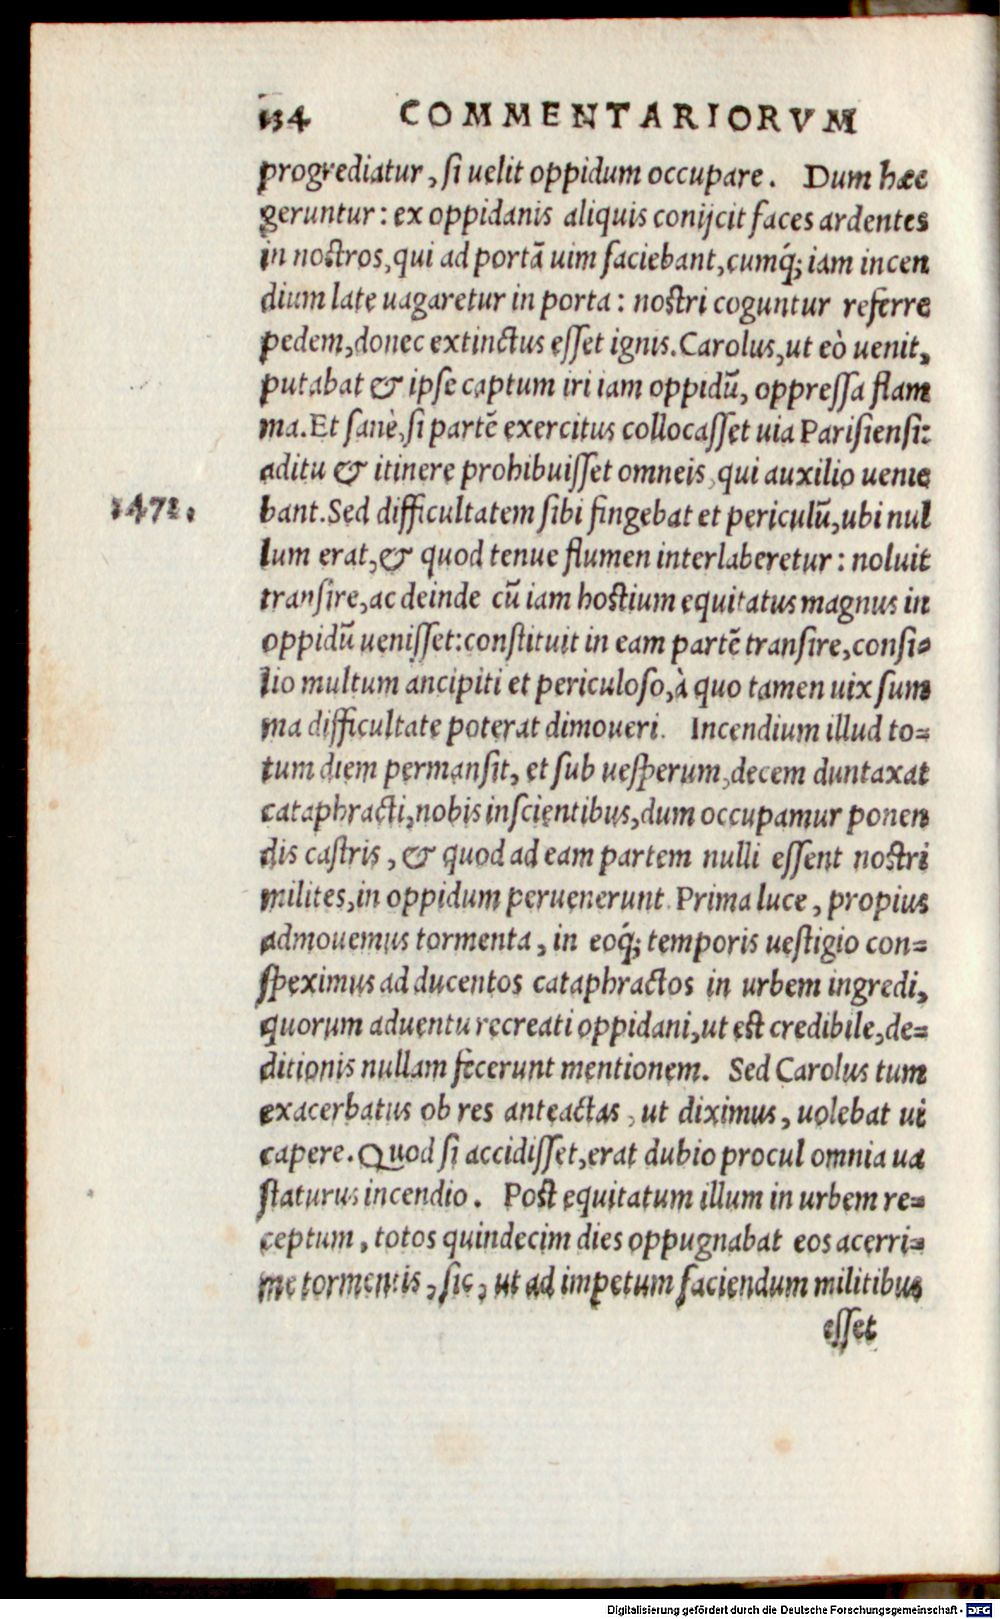 134 COMMENTARIORVM
progrediatur, si uelit oppidum occupare. Dum hæc
geruntur: ex oppidanis aliquis conijcit faces ardentes
in nostros, qui ad portā uim faciebant, cumq́; iam incen
dium late uagaretur in porta: nostri coguntur referre
pedem, donec extinctus esset ignis. Carolus, ut eò uenit,
putabat & ipse captum iri iam oppidū, oppressa flam
ma. Et sanè, si partē exercitus collocasset uia Parisiensi:
aditu & itinere prohibuisset omneis, qui auxilio uenie
1471. bant. Sed difficultatem sibi fingebat et periculū, ubi nul
lum erat, & quod tenue flumen interlaberetur: noluit
transire, ac deinde cū iam hostium equitatus magnus in
oppidū uenisset: constituit in eam partē transire, consi-
lio multum ancipiti et periculoso, à quo tamen uix sum
ma difficultate poterat dimoueri. Incendium illud to-
tum diem permansit, et sub uesperum, decem duntaxat
cataphracti, nobis inscientibus, dum occupamur ponen
dis castris, & quod ad eam partem nulli essent nostri
milites, in oppidum peruenerunt. Prima luce, propius
admouemus tormenta, in eoq́; temporis uestigio con-
speximus ad ducentos cataphractos in urbem ingredi,
quorum aduentu recreati oppidani, ut est credibile, de-
ditionis nullam fecerunt mentionem. Sed Carolus tum
exacerbatus ob res anteactas, ut diximus, uolebat ui
capere. Quod si accidisset, erat dubio procul omnia ua
staturus incendio. Post equitatum illum in urbem re-
ceptum, totos quindecim dies oppugnabat eos acerri-
me tormentis, sic, ut ad impetum faciendum militibus
esset
Digitalisierung gefördert durch die Deutsche Forschungsgemeinschaft - DFG